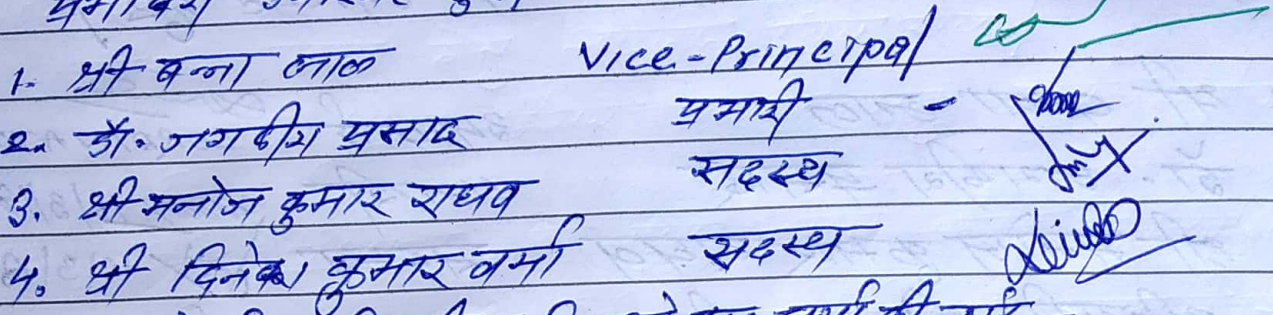 1. श्री बन्ना लाल Vice-Principal
2. डॉ. जगदीश प्रसाद प्रभारी -
3. श्री मनोज कुमार राघव सदस्य
4. श्री दिनेश कुमार वर्मा सदस्य